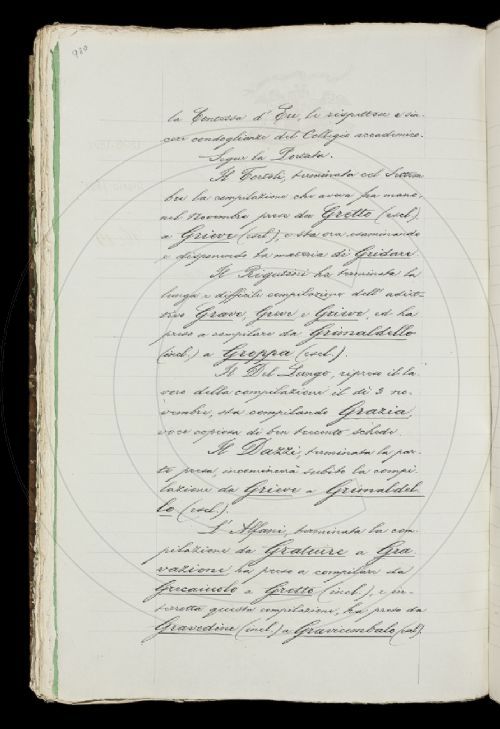 980
la Contessa d' Eu, le rispettose e sin-
cere condoglianze del Collegio accademico.
Segue la Portata.
Il Tortoli, terminata col Settem
bre la compilazione che aveva fra mano,
nel Novembre prese da Gretto (escl.)
a Grieve (escl.), e sta ora esaminando
e disponendo la materia di Gridare
Il Rigutini ha terminata la
lunga e difficile compilazione dell' adiet-
tivo Grave, Greve e Grieve, ed ha
preso a compilare da Grimaldello
(incl.) a Groppa (escl.).
Il Del Lungo, ripreso il la
voro della compilazione il dì 3 no-
vembre, sta compilando Grazia,
voce copiosa di ben trecento schede.
Il Dazzi, terminata la par-
te presa, incomincerà subito la compi-
lazione da Grieve a Grimaldel
lo (escl.).
L' Alfani, terminata la com-
pilazione da Gratuire a Gra
vazione ha preso a compilare da
Grecaiuolo a Gretto (incl.), e in-
terrotta questa compilazione, ha preso da
Gravedine (incl.) a Gravicembalo (escl.).